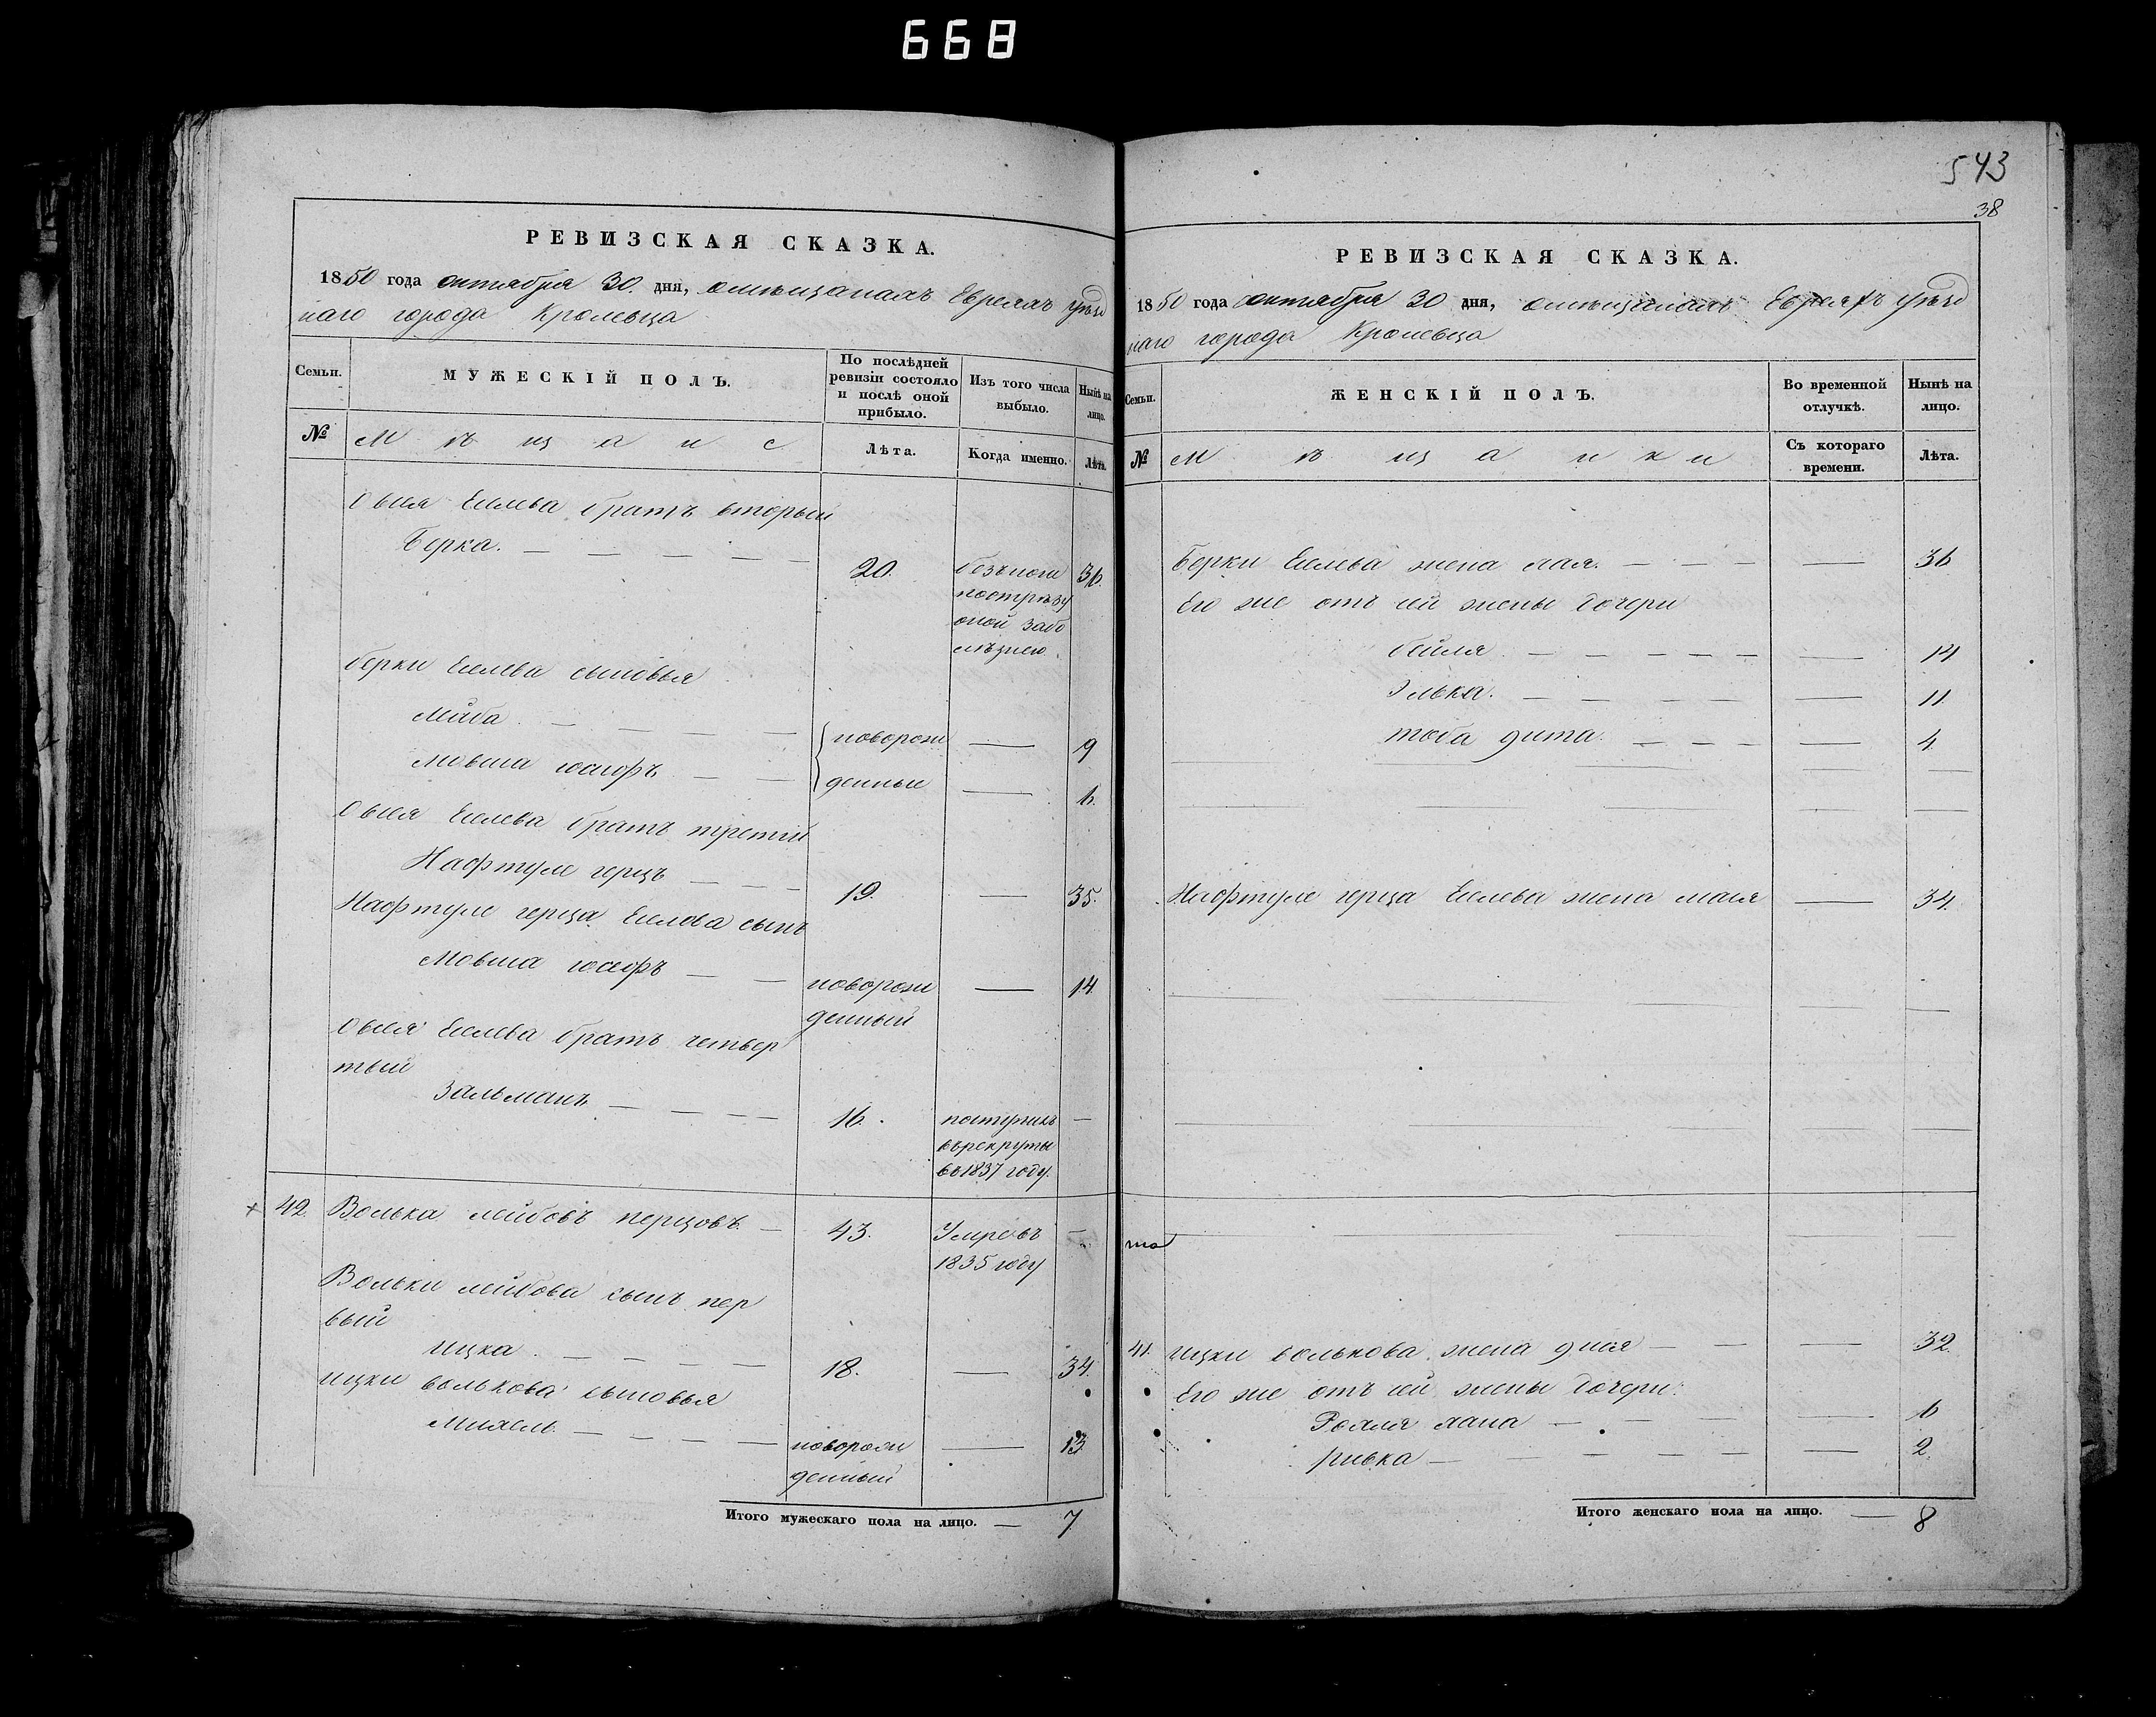 668
РЕВИЗСКАЯ СКАЗКА.
1850 года октября 30. дня, омѣщанахъ Евреяхъ уѣзд
наго города Кролевца
Семьи.
МУЖЕСКІЙ ПОЛЪ.
По послѣдней ревизіи состояло и послѣ оной прибыло.
Изъ того числа выбыло.
Нынѣ на лицо.
№
Мѣщане
Лѣта.
Когда именно.
Лѣта.
Овсея Еселева братъ вторый
Берка. 20. 36.
оной забо
лѣзнею
берки Еселева сыновья
Лейба новорож 9
Мовша іосифъ денные 6.
Овсея Еселева братъ третій
Нафтуле герцъ 19. 35.
Нафтуле герца Еселева сынъ
Мовша іосифъ новорож 14
денный
Овсея Еселева братъ четвер
тый
Зальманъ 16. поступилъ
въ рекруты
въ 1837 году.
42. Волька лейбовъ перцовъ 43. Умре въ
1835 году
Вольки лейбова сынъ пер
вый
ицка 18. 34.
ицки волькова сыновья
Михель новорож 13
денный
Итого мужескаго пола на лицо. 7
543
38
РЕВИЗСКАЯ СКАЗКА.
1850 года октября 30 дня, омѣщанахъ Евреяхъ уѣзд
наго города Кролевца
Семьи.
ЖЕНСКІЙ ПОЛЪ.
Во временной отлучкѣ.
Нынѣ на лицо.
№
Мѣщанки
Съ котораго времени.
Лѣта.
Берки Еселева жена хая. 36
Его же отъ сей жены дочери
бейля 14
Элька. 11.
тоба дита. 4
Нафтуле герца Еселева жена мася 34.
41. ицки волькова жена 32.
Его же отъ сей жены дочери:
хана 6
ривка 2.
Итого женскаго пола на лицо. 8